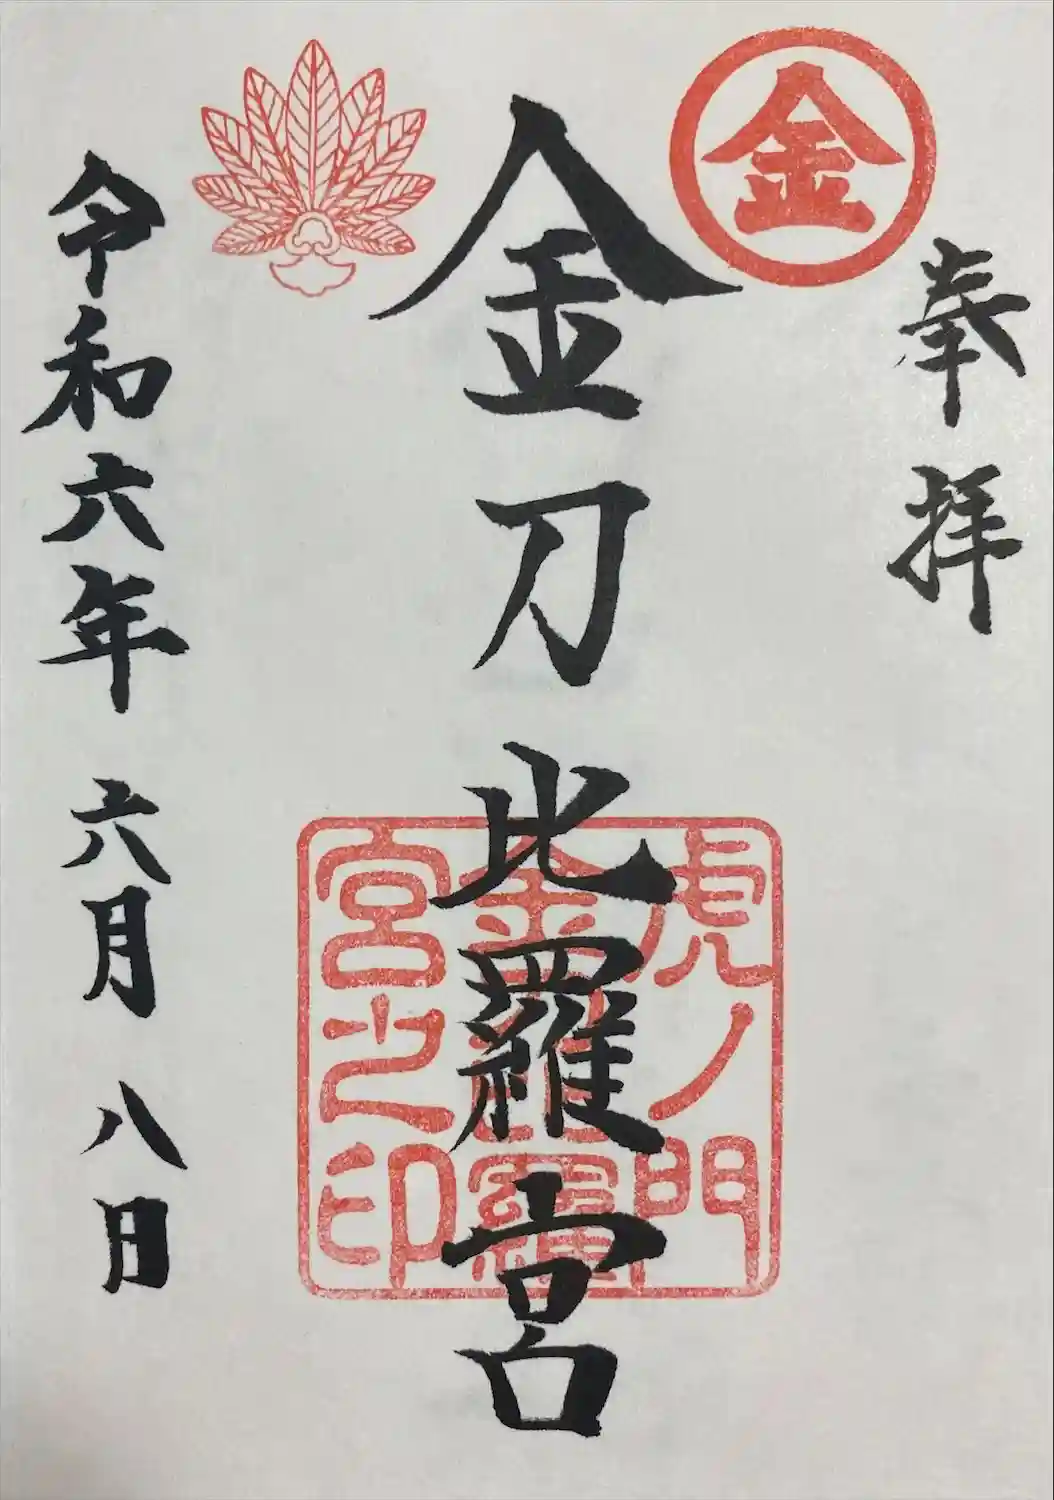 金
奉拝
金刀比羅宮
虎ノ門
金刀比羅
宮之印
令和六年 六月 八日